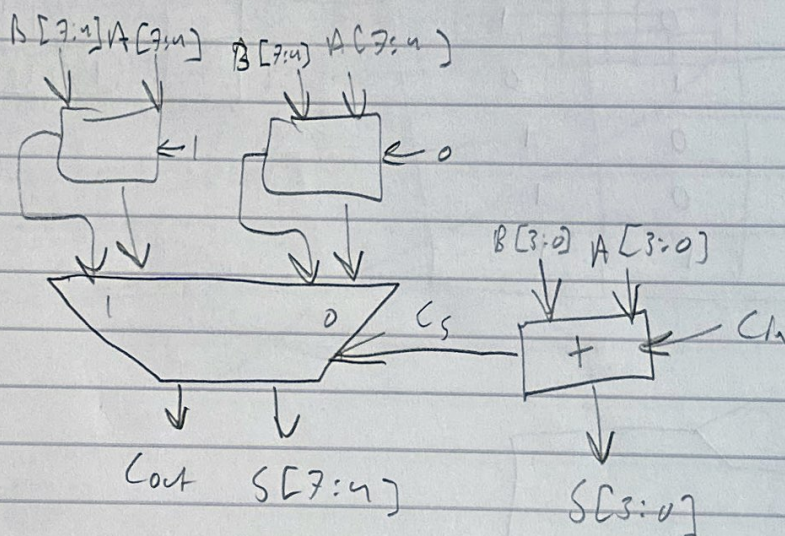 B[7:4] A[7:4] B[7:4] A[7:4]
1 0
B[3:0] A[3:0]
1 0 Cs + Cin
Cout S[7:4] S[3:0]